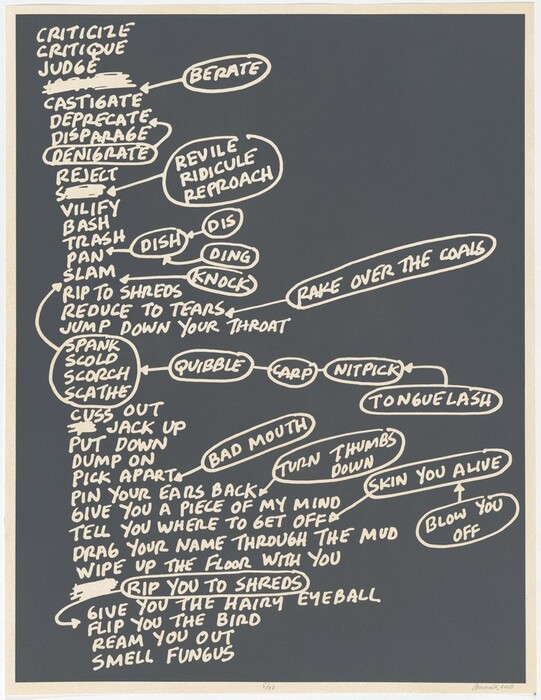 CRITICIZE
CRITIQUE
JUDGE
BERATE
CASTIGATE
DEPRECATE
DISPARAGE
DENIGRATE
REVILE
RIDICULE
REPROACH
REJECT
S
VILIFY
BASH
TRASH
DISH
DIS
PAN
DING
SLAM
KNOCK
RIP TO SHREDS
RAKE OVER THE COALS
REDUCE TO TEARS
JUMP DOWN YOUR THROAT
SPANK
SCOLD
SCORCH
SCATHE
QUIBBLE
CARP
NITPICK
TONGUELASH
CUSS OUT
JACK UP
PUT DOWN
DUMP ON
BAD MOUTH
PICK APART
TURN THUMBS
DOWN
PIN YOUR EARS BACK
SKIN YOU ALIVE
GIVE YOU A PIECE OF MY MIND
TELL YOU WHERE TO GET OFF
BLOW YOU
OFF
DRAG YOUR NAME THROUGH THE MUD
WIPE UP THE FLOOR WITH YOU
RIP YOU TO SHREDS
GIVE YOU THE HAIRY EYEBALL
FLIP YOU THE BIRD
REAM YOU OUT
SMELL FUNGUS